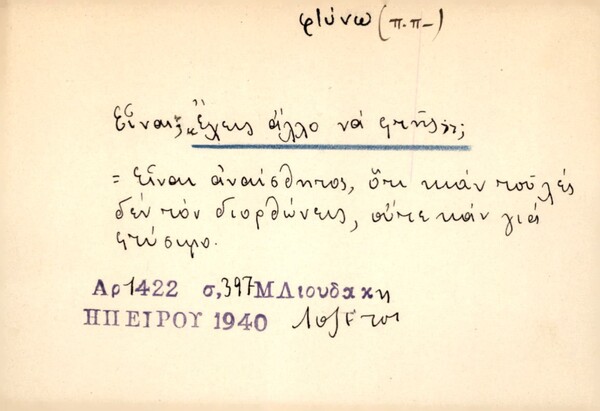 φτύνω (π.π-)
Εἶναι; «Ἔχεις ἄλλο νά φτῆς»;
= Εἶναι ἀναίσθητος, ὅτι κιάν τοῦ λές
δέν τόν διορθώνεις, οὔτε κάν γιά
φτύσιμο.
Αρ 1422 σ, 397 Μ Λιουδακη
ΗΠΕΙΡΟΥ 1940